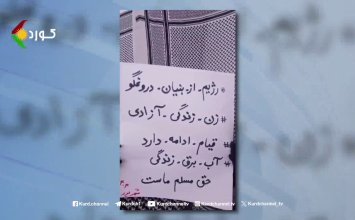 کورد
# رژیم - از - بنیان - دروغگو
# زن - زندگی - آزادی
# قیام - ادامه - دارد
# آب - برق - زندگی
حق مسلم ماست
Kurdchannel
Kurdch1
Kurdchanneltv
Kurdchannel_tv